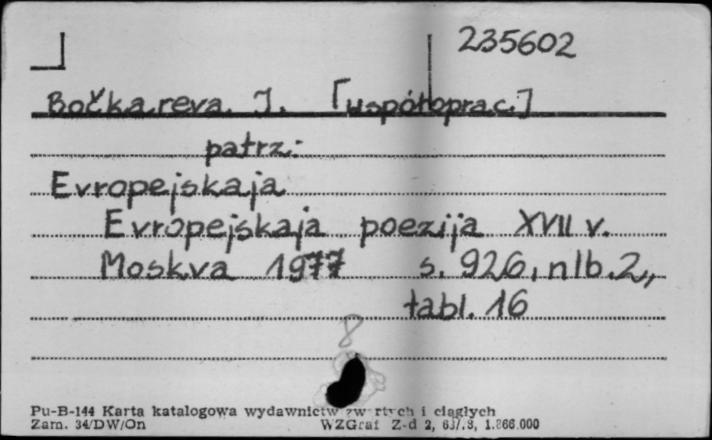 235602
Bočkareva J. [współoprac.]
patrz:
Evropejskaja
Evropejskaja poezija XVII v.
Moskva 1977 s. 926, nlb. 2,
tabl. 16
8
Pu-B-144 Karta katalogowa wydawnictw zwartych i ciągłych
Zam. 34/DW/On WZGraf Z-d 2,